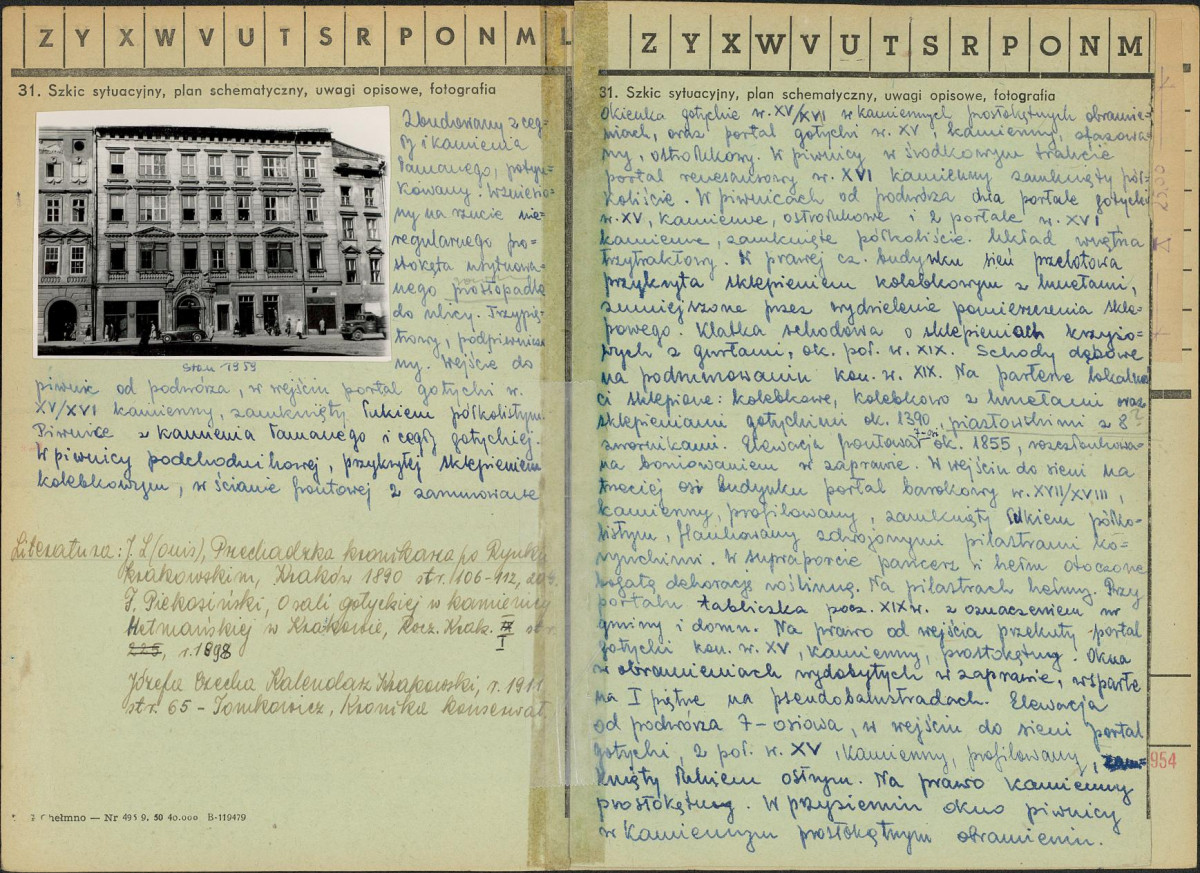 Z Y X W V U T S R P O N M L
31. Szkic sytuacyjny, plan schematyczny, uwagi opisowe, fotografia
Zbudowany z ceg-
ły i kamienia
łamanego, potyn-
kowany. Wzniesio-
ny na rzucie nie=
regularnego pro=
stokąta usytuowa-
nego prostopadle
do ulicy. Trzypię-
trowy, podpiwniczo
ny. Wejście do
stan 1959
piwnic od podwórza, w wejściu portal gotycki w.
XV/XVI kamienny, zamknięty łukiem półkolistym.
Piwnice z kamienia łamanego i cegły gotyckiej.
W piwnicy podchodnikowej, przykrytej sklepieniem
kolebkowym, w ścianie frontowej 2 zamurowane
Literatura: J. L(ouis), Przechadzka kronikarza po Rynku
krakowskim, Kraków 1890 str. 106-112,
F. Piekosiński, O sali gotyckiej w kamienicy
Hetmańskiej w Krakowie, Rocz. Krak. str
225, r. 1898 I
Józefa Czecha Kalendarz Krakowski, r. 1911
str. 65 - Tomkowicz, Kronika konserwat.
Chełmno — Nr 495 9. 50 40.000 B-119479
Z Y X W V U T S R P O N M
31. Szkic sytuacyjny, plan schematyczny, uwagi opisowe, fotografia
Okienka gotyckie w. XV/XVI w kamiennych prostokątnych obramie=
niach, oraz portal gotycki w. XV kamienny, sfazowa=
ny, ostrołukowy. W piwnicy w środkowym trakcie
portal renesansowy w. XVI kamienny zamknięty pół-
koliście. W piwnicach od podwórza dwa portale gotyckie
w. XV, kamienne, ostrołukowe i 2 portale w. XVI
kamienne, zamknięte półkoliście. Układ wnętrza
trzytraktowy. W prawej cz. budynku sień przelotowa
przykryta sklepieniem kolebkowym z lunetami,
zmniejszona przez wydzielenie pomieszczenia skle-
powego. Klatka schodowa o sklepieniach krzyżo-
wych z gurtami, ok. poł. w. XIX. Schody dębowe
na podmurowaniu kon. w. XIX. Na parterze lokalnoś
ci sklepione: kolebkowe, kolebkowo z lunetami oraz
sklepieniami gotyckimi ok. 1390, piastowskimi z 8?
zwornikami. Elewacja frontowa 7-osi ok. 1855, rozczłonkowa-
na boniowaniem w zaprawie. W wejściu do sieni na
trzeciej osi budynku portal barokowy w. XVII/XVIII,
kamienny, profilowany, zamknięty łukiem półko-
listym, flankowany zdwojonymi pilastrami ko=
rynckimi. W supraporcie pancerz i hełm otoczone
bogatą dekoracją roślinną. Na pilastrach hełmy. Przy
portalu tabliczka pocz. XIX w. z oznaczeniem nr
gminy i domu. Na prawo od wejścia przekuty portal
gotycki kon. w. XV, kamienny, prostokątny. Okna
w obramieniach wydobytych w zaprawie, wsparte
na I piętrze na pseudobalustradach. Elewacja
od podwórza 7-osiowa, w wejściu do sieni portal
gotycki, 2 poł. w. XV, kamienny, profilowany, zam=
knięty łukiem ostrym. Na prawo kamienny
prostokątny. W przyziemiu okno piwnicy
w kamiennym prostokątnym obramieniu.
954